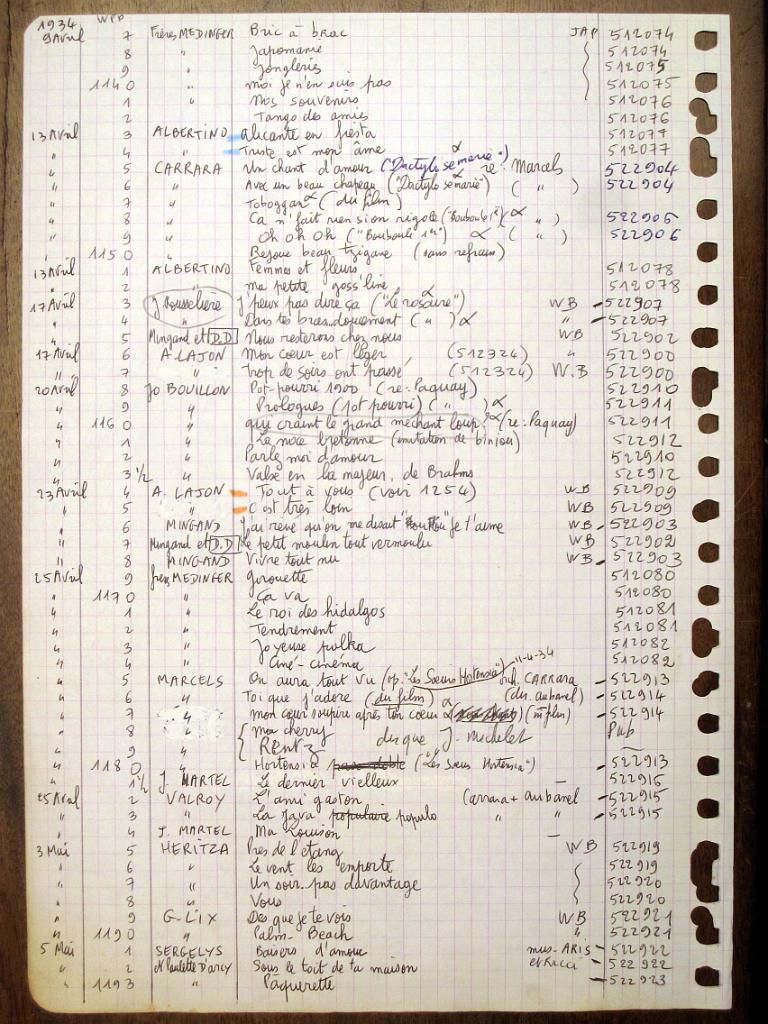 1934 WPD
9 Avril 7 Frères MEDINGER Bric à brac JAP 512074
8 " Japomanie 512074
9 " Jongleries 512075
1140 " Moi je n'en suis pas 512075
1 " Nos souvenirs 512076
2 Tango des amies 512076
13 Avril 3 ALBERTINO Alicante en fiesta 512077
" 4 " Triste est mon âme 512077
" 5 CARRARA Un chant d'amour ("Dactylo se marie") re: Marcels 522904
" 6 " Avec un beau chapeau ("Dactylo se marie") ( " ) 522904
" 7 " Toboggan (du film)
" 8 " Ca n'fait rien si on rigole ("Bouboule 1er") ( " ) 522906
" 9 " Oh oh oh ("Bouboule 1er") ( " ) 522906
" 1150 Rejoue beau tzigane (sans refrain)
13 Avril 1 ALBERTINO Femmes et fleurs 512078
2 " ma petite goss'line 512078
17 Avril 3 J Rousselière J'peux pas dire ça ("Le rosaire") WB 522907
" 4 " Dans tes bras doucement ( " ) " 522907
" 5 Mingand et D.D Nous resterons chez nous WB 522902
17 Avril 6 A. LAJON Mon coeur est léger (512324) " 522900
" 7 " Trop de soirs ont passé (512324) W.B 522900
20 Avril 8 Jo BOUILLON Pot-pourri 1900 (re: Paquay) 522910
" 9 " Prologues (pot pourri) ( " ) 522911
" 1160 " qui craint le grand méchant loup? (re: Paquay) 522911
" 1 " La noce bretonne (imitation de biniou) 522912
" 2 " Parle moi d'amour 522910
" 3 1/2 " Valse en la majeur, de Brahms 522912
23 Avril 4 A. LAJON Tout à vous (voir 1254) WB 522909
" 5 " C'est très loin WB 522909
" 6 MINGAND J'ai rêvé qu'on me disait je t'aime WB 522903
" 7 Mingand et D.D Le petit moulin tout vermoulu WB 522902
" 8 MINGAND Vivre tout nu WB 522903
25 Avril 9 frères MEDINGER Girouette 512080
" 1170 " Ça va 512080
" 1 " Le roi des hidalgos 512081
" 2 " Tendrement 512081
" 3 " Joyeuse polka 512082
" 4 " Ciné-cinéma 512082
" 5 MARCELS On aura tout vu (op. "Les Soeurs Hortensia") 11-4-34 CARRARA 522913
" 6 " Toi que j'adore (du film) (dir. aubanel) 522914
" 7 " mon coeur soupire après ton coeur 522914
" 8 " ma cherry disque J. Michelet Pub
" 9 " Rentz
" 1180 " Hortensia ("Les Soeurs Hortensia") 522913
" 1 1/2 J. MARTEL Le dernier vielleux 522916
25 Avril 2 VALROY L'ami gaston (Carrara + aubanel 522915
" 3 " La Java populaire populo " " 522915
" 4 J. MARTEL Ma Louison
3 Mai 5 HERITZA Près de l'étang WB 522919
" 6 " Le vent les emporte 522919
" 7 " Un soir pas davantage 522920
" 8 " Vous 522920
" 9 G. LIX Dès que je te vois WB 522921
" 1190 " Palm-Beach " 522921
5 Mai 1 SERGELYS Baisers d'amour mus-ARIS 522922
" 2 et Paulette D'ARCY Sous le toit de ta maison et Ricci 522922
" 1193 " Paquerette 522923